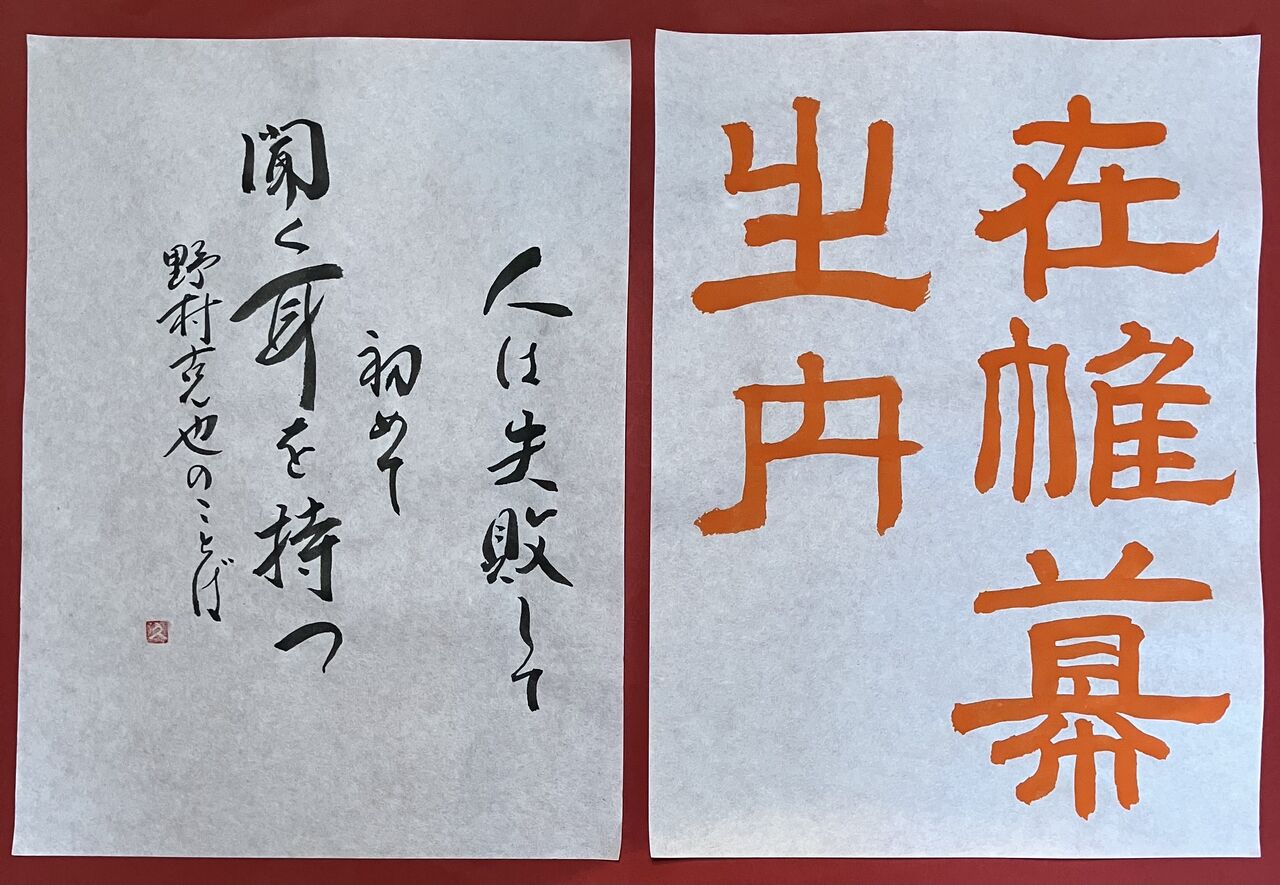 在帷幕
之内
人は失敗して
初めて
聞く耳を持つ
野村克也のことば